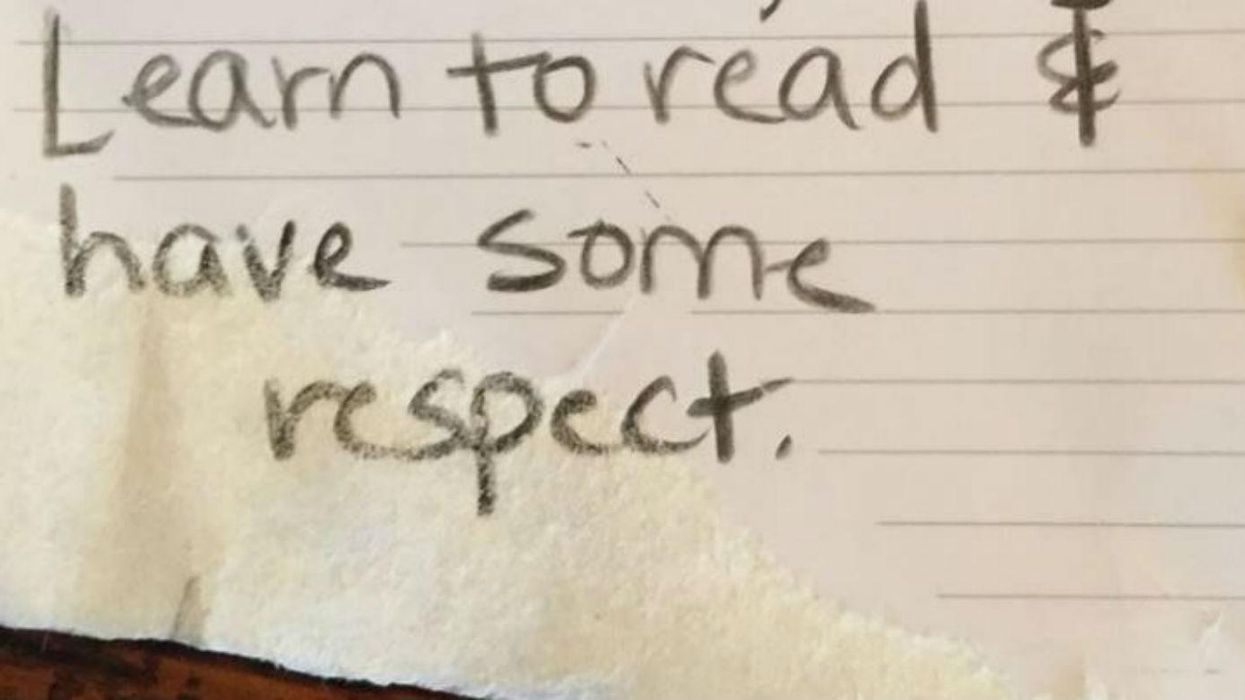 Learn to read &
have some
respect.